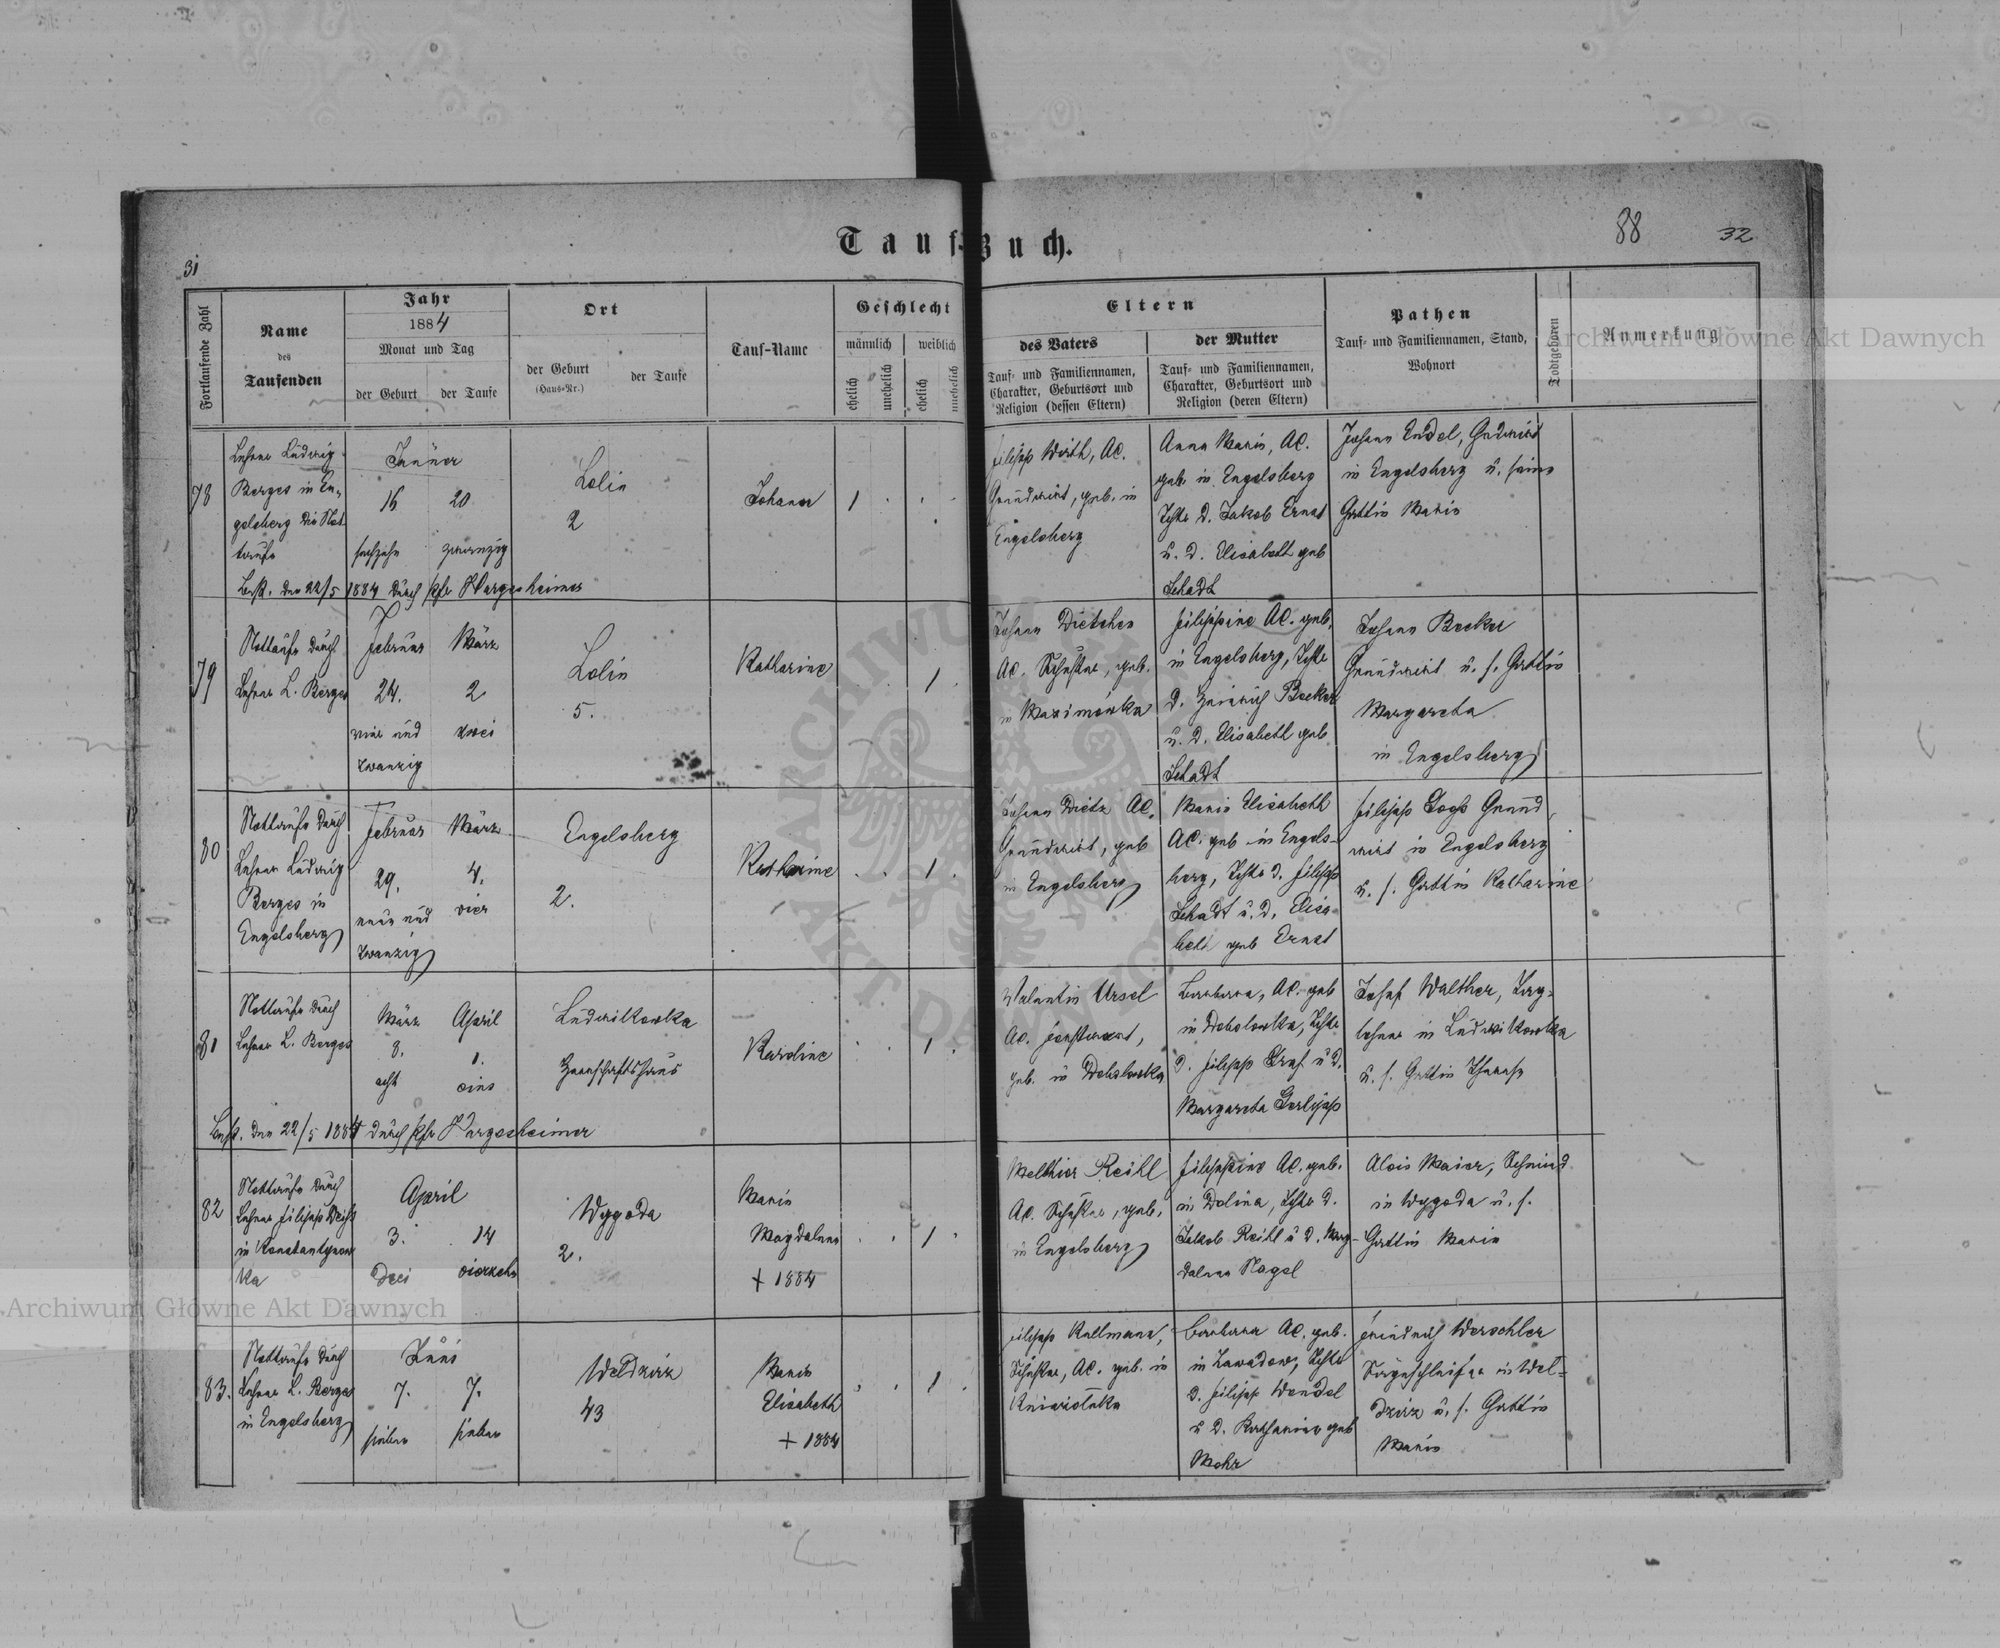 Tauf-Buch.
31
88
32
Fortlaufende Zahl
Name
des
Taufenden
Jahr
1884
Monat und Tag
der Geburt
der Taufe
Ort
der Geburt
(Haus-Nr.)
der Taufe
Tauf-Name
Geschlecht
männlich
weiblich
ehelich
unehelich
ehelich
unehelich
Eltern
des Vaters
Tauf- und Familiennamen,
Charakter, Geburtsort und
Religion (dessen Eltern)
der Mutter
Tauf- und Familiennamen,
Charakter, Geburtsort und
Religion (deren Eltern)
Pathen
Tauf- und Familiennamen, Stand,
Wohnort
Todtgeboren
Anmerkung
78
Lehrer Ludwig
Berges in En-
gelsberg die Not
taufe
Jänner
16 20
sechzehn zwanzig
Lolin
2
Johann
1
Filipp Wirth, AC.
Grundwirt, geb. in
Engelsberg
Anna Maria, AC.
geb. in Engelsberg
Tchtr d. Jakob Ernst
u. d. Elisabeth geb
Schadt
Johann Endel, Grdwirt
in Engelsberg u. seine
Gattin Maria
Best. den 22/5 1884 durch Pfr Hargesheimer
79
Nottaufe durch
Lehrer L. Berges
Februar März
24. 2
vier und zwei
zwanzig
Lolin
5.
Katharine
1
Johann Dietches
AC. Schuster, geb.
in Maximówka
Filippine AC. geb.
in Engelsberg, Tchtr
d. Heinrich Becker
u. d. Elisabeth geb
Schadt
Johann Becker
Grundwirt u. s. Gattin
Margareta
in Engelsberg
80
Nottaufe durch
Lehrer Ludwig
Berges in
Engelsberg
Februar März
29. 4.
neun und vier
zwanzig
Engelsberg
2.
Katharine
1
Johann Dietz AC.
Grundwirt, geb
in Engelsberg
Maria Elisabeth
AC. geb in Engels-
berg, Tchtr d. Filipp
Schadt u. d. Elisa-
beth geb Ernst
Filipp Grund
wirt in Engelsberg
u. s. Gattin Katharine
81
Nottaufe durch
Lehrer L. Berges
März April
8. 1.
acht eins
Ludwikowka
Herrschaftshaus
Karoline
1
Valentin Ursel
AC. Forstwart,
geb. in Debolowka
Barbara, AC. geb
in Debolowka, Tchtr
d. Filipp Graf u d.
Margareta Gerlipp
Josef Walther, Tag-
löhner in Ludwikowka
u. s. Gattin Therese
Best. den 22/5 1884 durch Pfr Hargesheimer
82
Nottaufe durch
Lehrer Filipp
in Konstantynow
ka
April
3. 14
drei vierzehn
Wygoda
2.
Maria
Magdalena
+ 1884
1
Melchior Reihl
AC. Schuster, geb.
in Engelsberg
Filippine AC. geb.
in Dolina, Tchtr d.
Jakob Reihl u d. Mag-
dalena Nagel
Alois Maier, Schmied
in Wygoda u. s.
Gattin Maria
83.
Nottaufe durch
Lehrer L. Berges
in Engelsberg
Juni
7. 7.
sieben sieben
Weldzirz
43
Maria
Elisabeth
+ 1884
1
Filipp Kallmann,
Schuster, AC. geb. in
Barbara AC. geb.
in Zawadow, Tchtr
d. Filipp Wendel
u d. Katharina geb
Mohr
Friedrich Werschler
Sägeschleifer in Wel-
dzirz u. s. Gattin
Maria
Archiwum Główne Akt Dawnych
Archiwum Główne Akt Dawnych
ARCHIWUM
AKT DAWNYCH